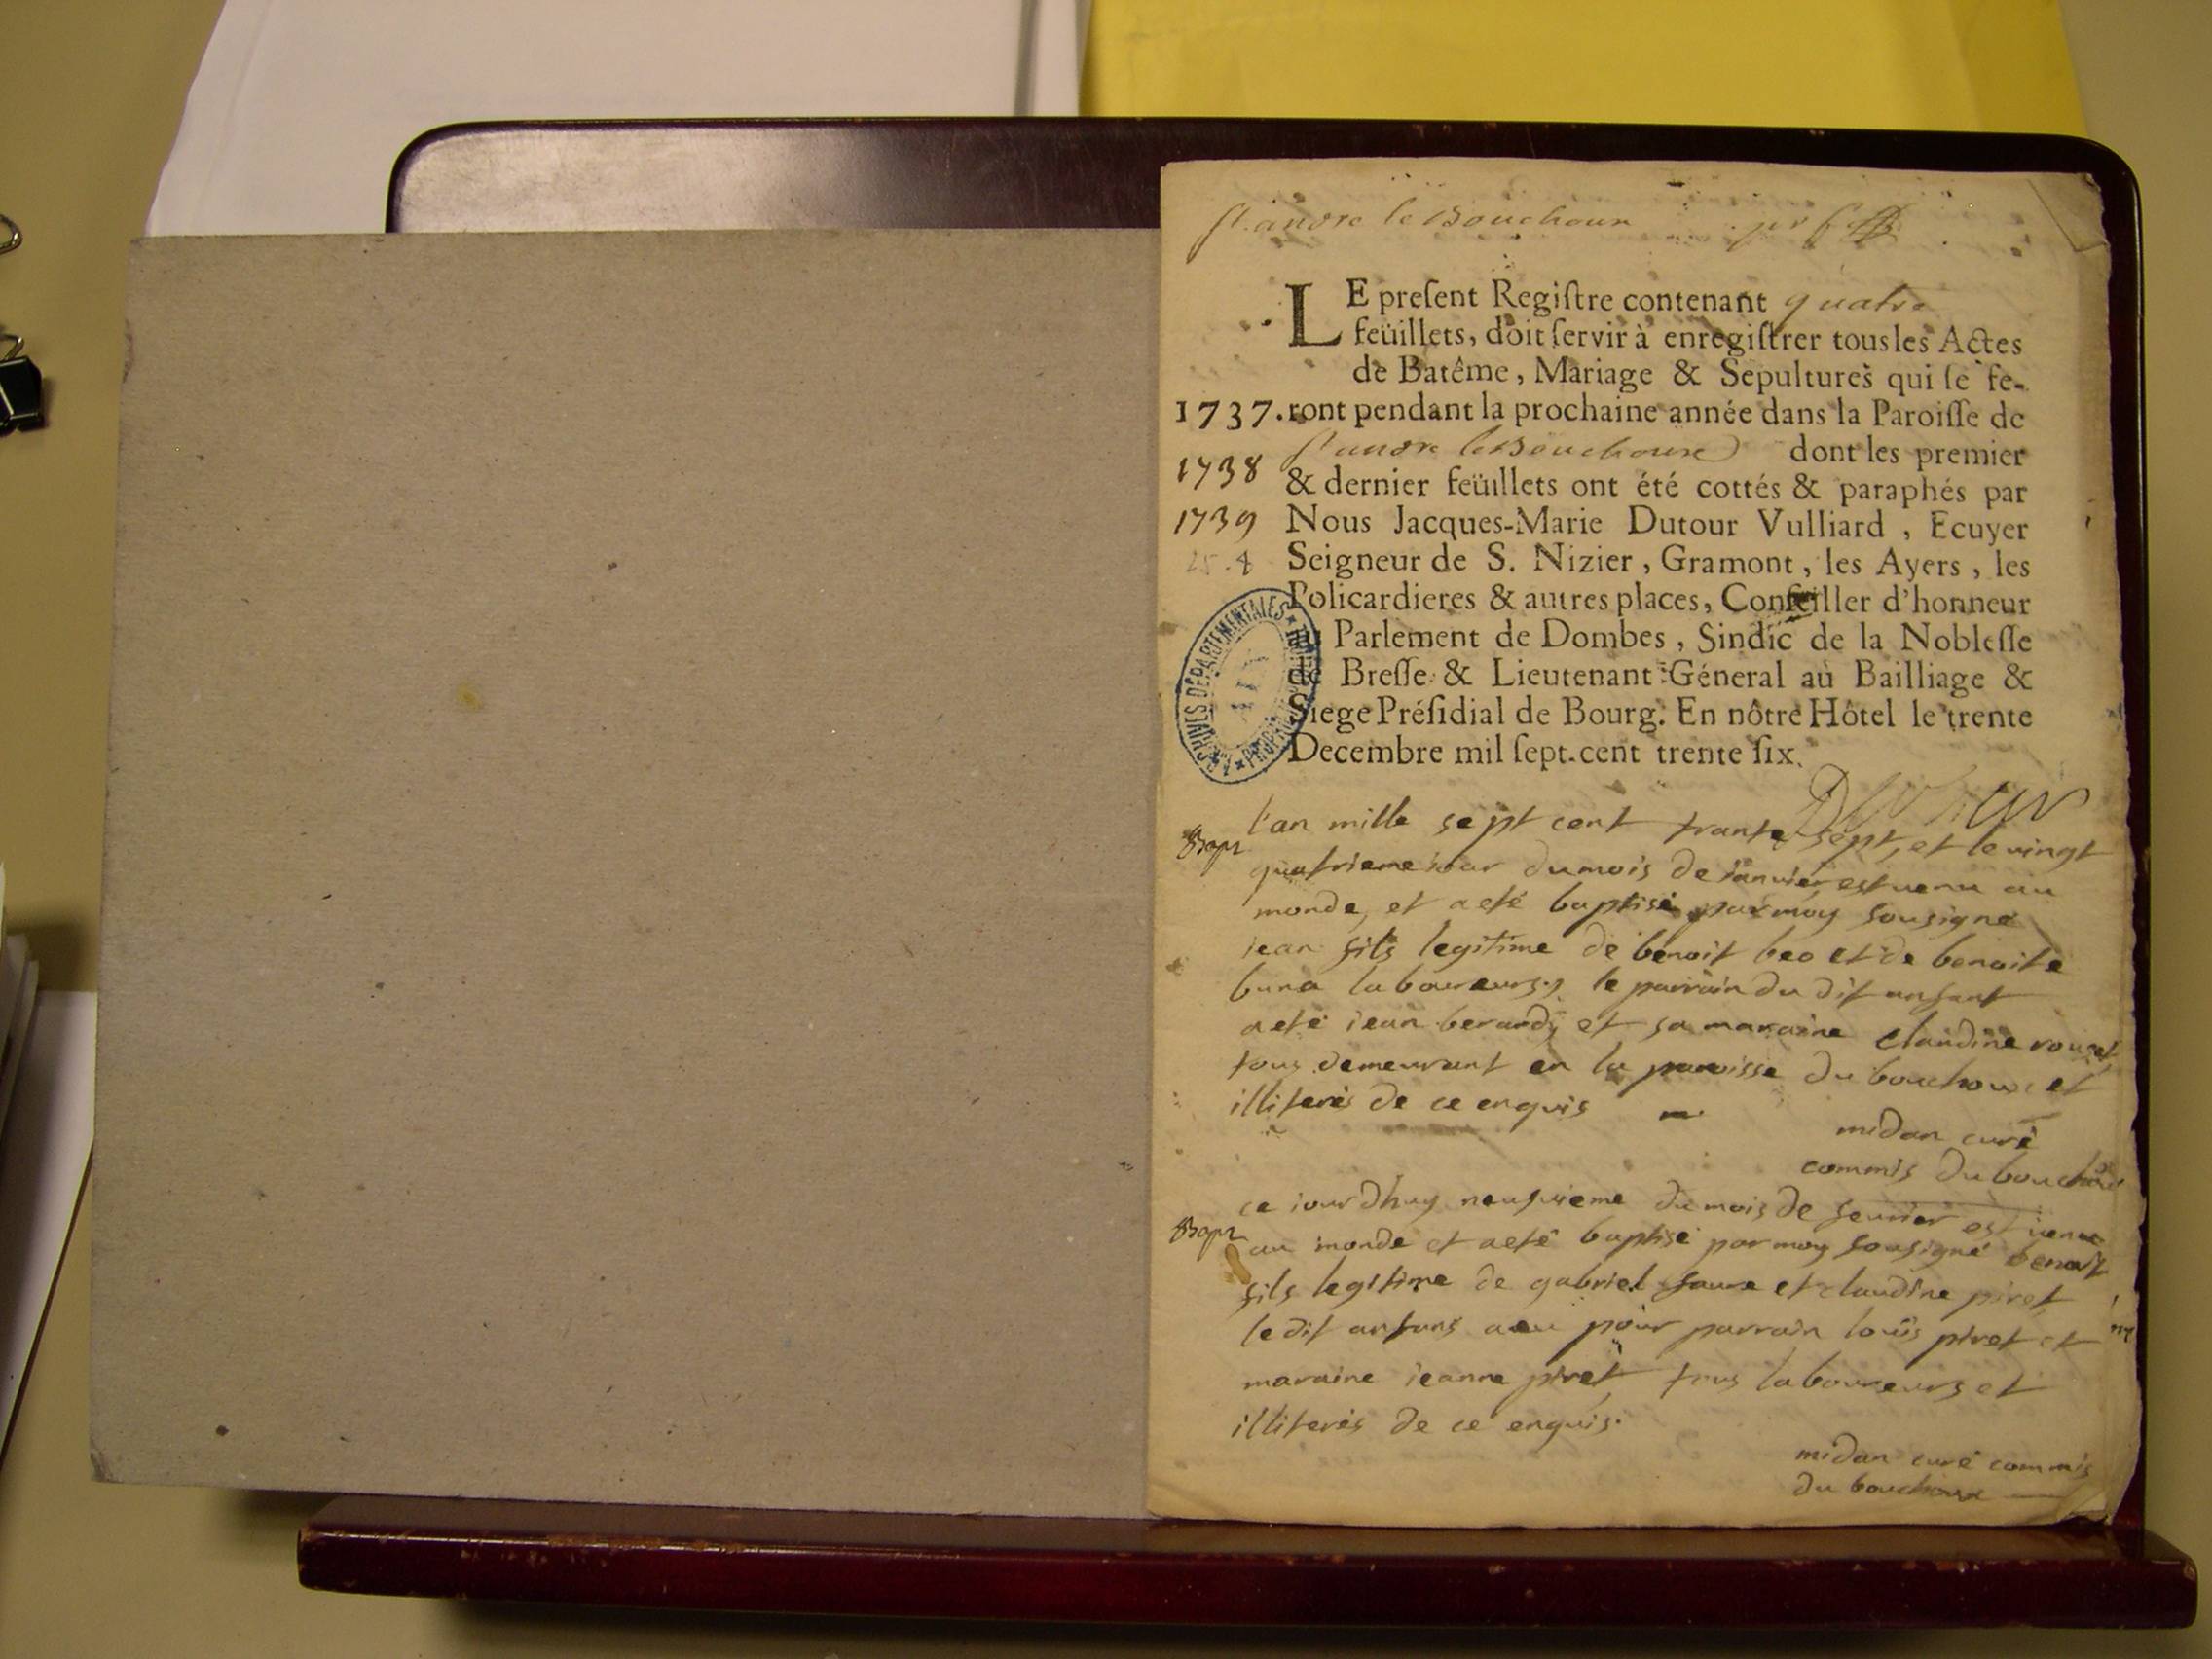 St. andre le Bouchoux
LE preſent Regiſtre contenant quatre
feüillets, doit ſervir à enregiſtrer tous les Actes
de Batême, Mariage & Sepultures qui ſe fe-
1737. ront pendant la prochaine année dans la Paroiſſe de
St andre le Bouchoux dont les premier
1738
& dernier feüillets ont été cottés & paraphés par
1739
Nous Jacques-Marie Dutour Vulliard, Ecuyer
Seigneur de S. Nizier, Gramont, les Ayers, les
Policardieres & autres places, Conſeiller d'honneur
au Parlement de Dombes, Sindic de la Nobleſſe
de Breſſe & Lieutenant Géneral au Bailliage &
Siege Préſidial de Bourg. En nôtre Hôtel le trente
Decembre mil ſept-cent trente ſix.
ARCHIVES DÉPARTEMENTALES
AIN
Bapt
l'an mille sept cent trante sept, et le vingt
quatrieme iour du mois de ianvier est venu au
monde, et a eté baptisé par moy sousigné
iean fils legitime de benoit beo et de benoite
buna laboureurs, le parrain du dit anfant
a eté iean berardy et sa maraine claudine rouset
tous demeurant en la paroisse du bouchoux et
illiterés de ce enquis
midan curé
commis du bouchoux
Bapt
ce iourdhuy neufvieme du mois de fevrier est venu
au monde et a eté baptisé par moy sousigné benoit
fils legitime de gabriel faure et claudine piret
le dit anfans a eu pour parrain louis piret et
maraine ieanne piret tous laboureurs et
illiterés de ce enquis.
midan curé commis
du bouchoux